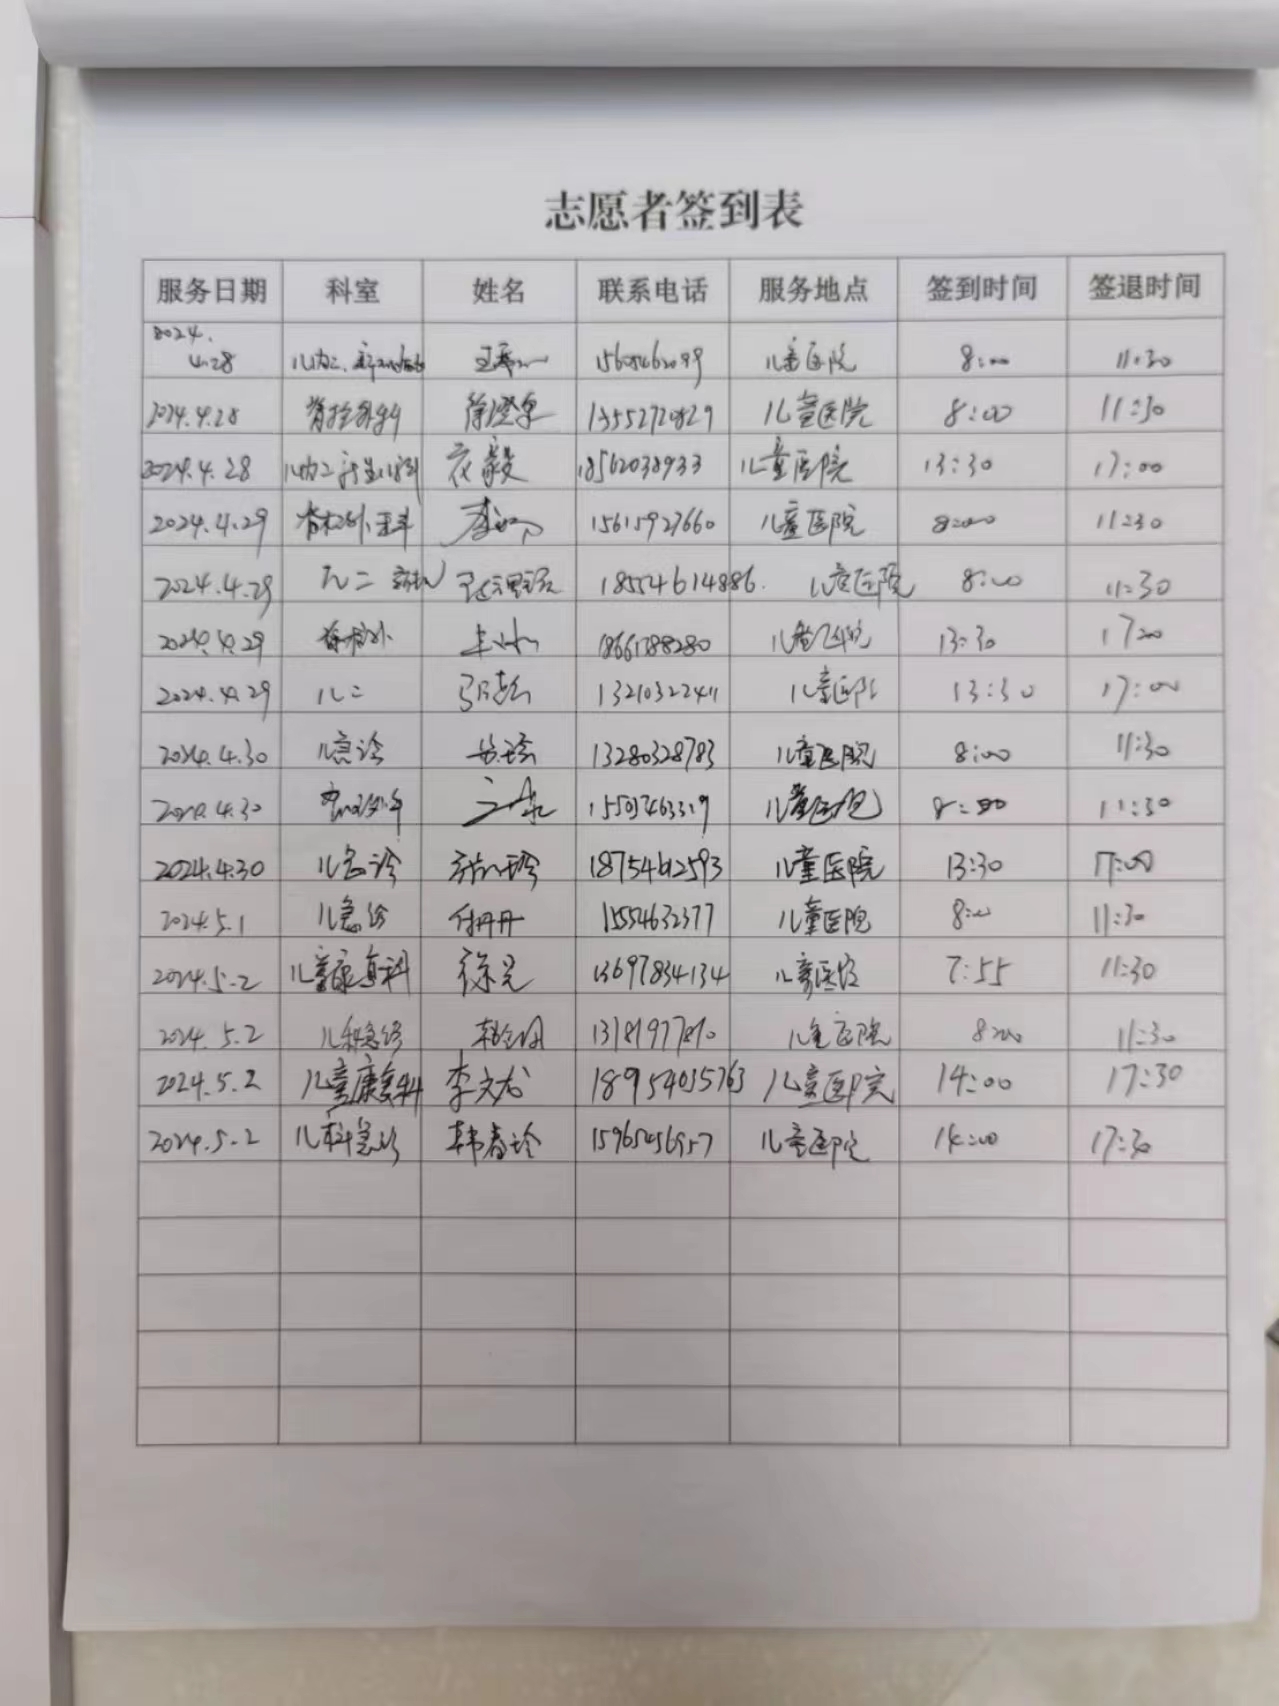 志愿者签到表
服务日期 科室 姓名 联系电话 服务地点 签到时间 签退时间
2024.4.28 儿内二、 儿童医院 8:00 11:30
2024.4.28 脊柱外科 徐澄泉 13552720829 儿童医院 8:00 11:30
2024.4.28 儿内二新生儿科 衣毅 18562038933 儿童医院 13:30 17:00
2024.4.29 脊柱外科 15615927660 儿童医院 8:00 11:30
2024.4.29 儿二 18554614886. 儿童医院 8:00 11:30
2024.4.29 脊柱外 18661788280 儿童医院 13:30 1700
2024.4.29 儿二 13210322411 儿童医院 13:30 17:00
2024.4.30 儿急诊 13280328783 儿童医院 8:00 11:30
2024.4.30 儿童医院 8:00 11:30
2024.4.30 儿急诊 18754612593 儿童医院 13:30 17:00
2024.5.1 儿急诊 付丹丹 15554632377 儿童医院 8:00 11:30
2024.5.2 儿童康复科 徐兄 13697834134 儿童医院 7:55 11:30
2024.5.2 儿科急诊 儿童医院 8:00 11:30
2024.5.2 儿童康复科 李文龙 18954035763 儿童医院 14:00 17:30
2024.5.2 儿科急诊 韩春玲 儿童医院 14:00 17:30